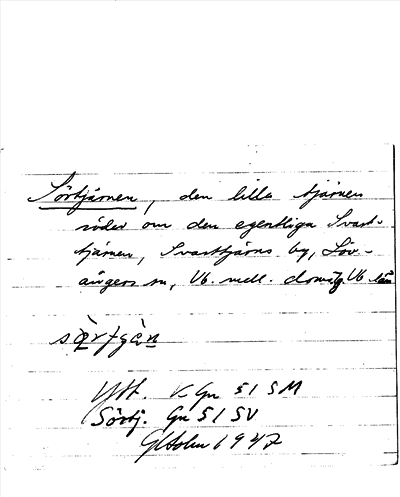 Sörtjärnen, den lilla tjärnen
söder om den egentliga Svart-
tjärnen, Svarttjärns by, Löv-
ångers sn, Vb. mell. doms. Vb län
Ytt. K Gn 51 SM
Sörtj. Gn 51 SV
GHolm 1947